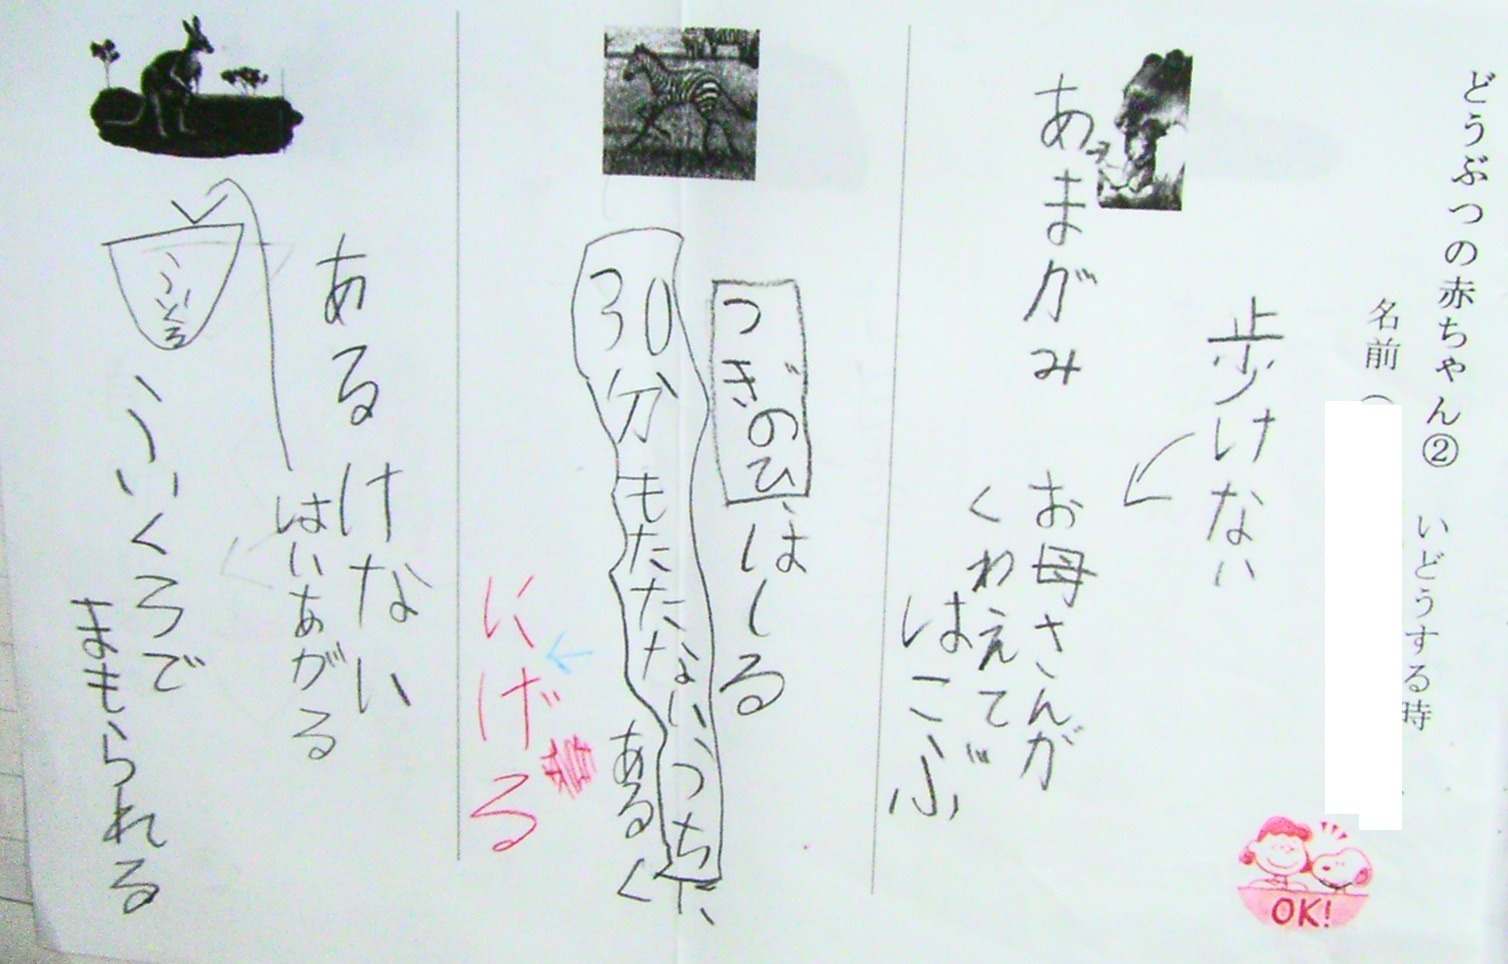 どうぶつの赤ちゃん② いどうする時
名前（
歩けない
あまがみ
お母さんが
くわえて
はこぶ
つぎのひ、はしる
30分もたたないうちに、
あるく
にげる
あるけない
はいあがる
ふくろで
まもられる
OK!